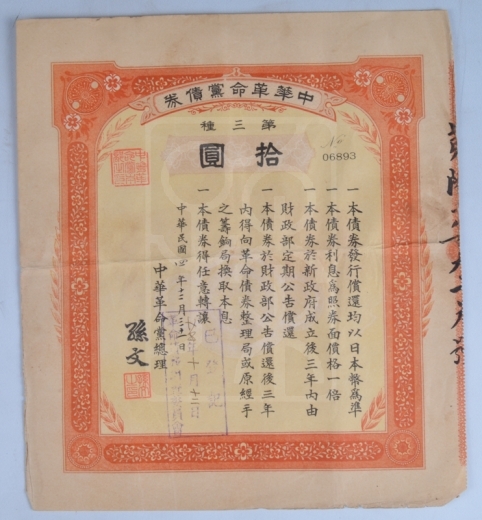 中華革命黨債券
第三種
拾圓
No
06893
一本債券發行償還均以日本幣爲準
一本債券利息爲照券面價格一倍
一本債券於新政府成立後三年內由
財政部定期公告償還
一本債券於財政部公告償還後三年
內得向革命債券整理局或原經手
之籌餉局換取本息
一本債券得任意轉讓
中華民國四年十二月三十一日
中華革命黨總理
孫文
已登記